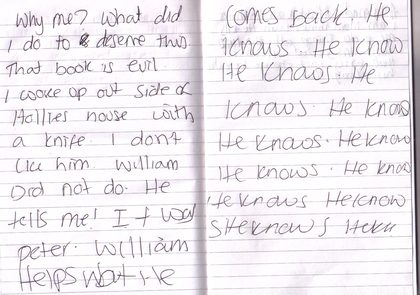 Why me? What did
I do to deserve this
That book is evil
I wooke op out side of
Hollies house with
a knife. I don't
like him. William
Did not do. He
tells me! It was
peter. William
Helps Wat Ive
Comes back. He
Knows. He Know
He Knows. He
Knows. He Know
He Knows. He know
He knows. He know
He knows He know
S He know S He kn